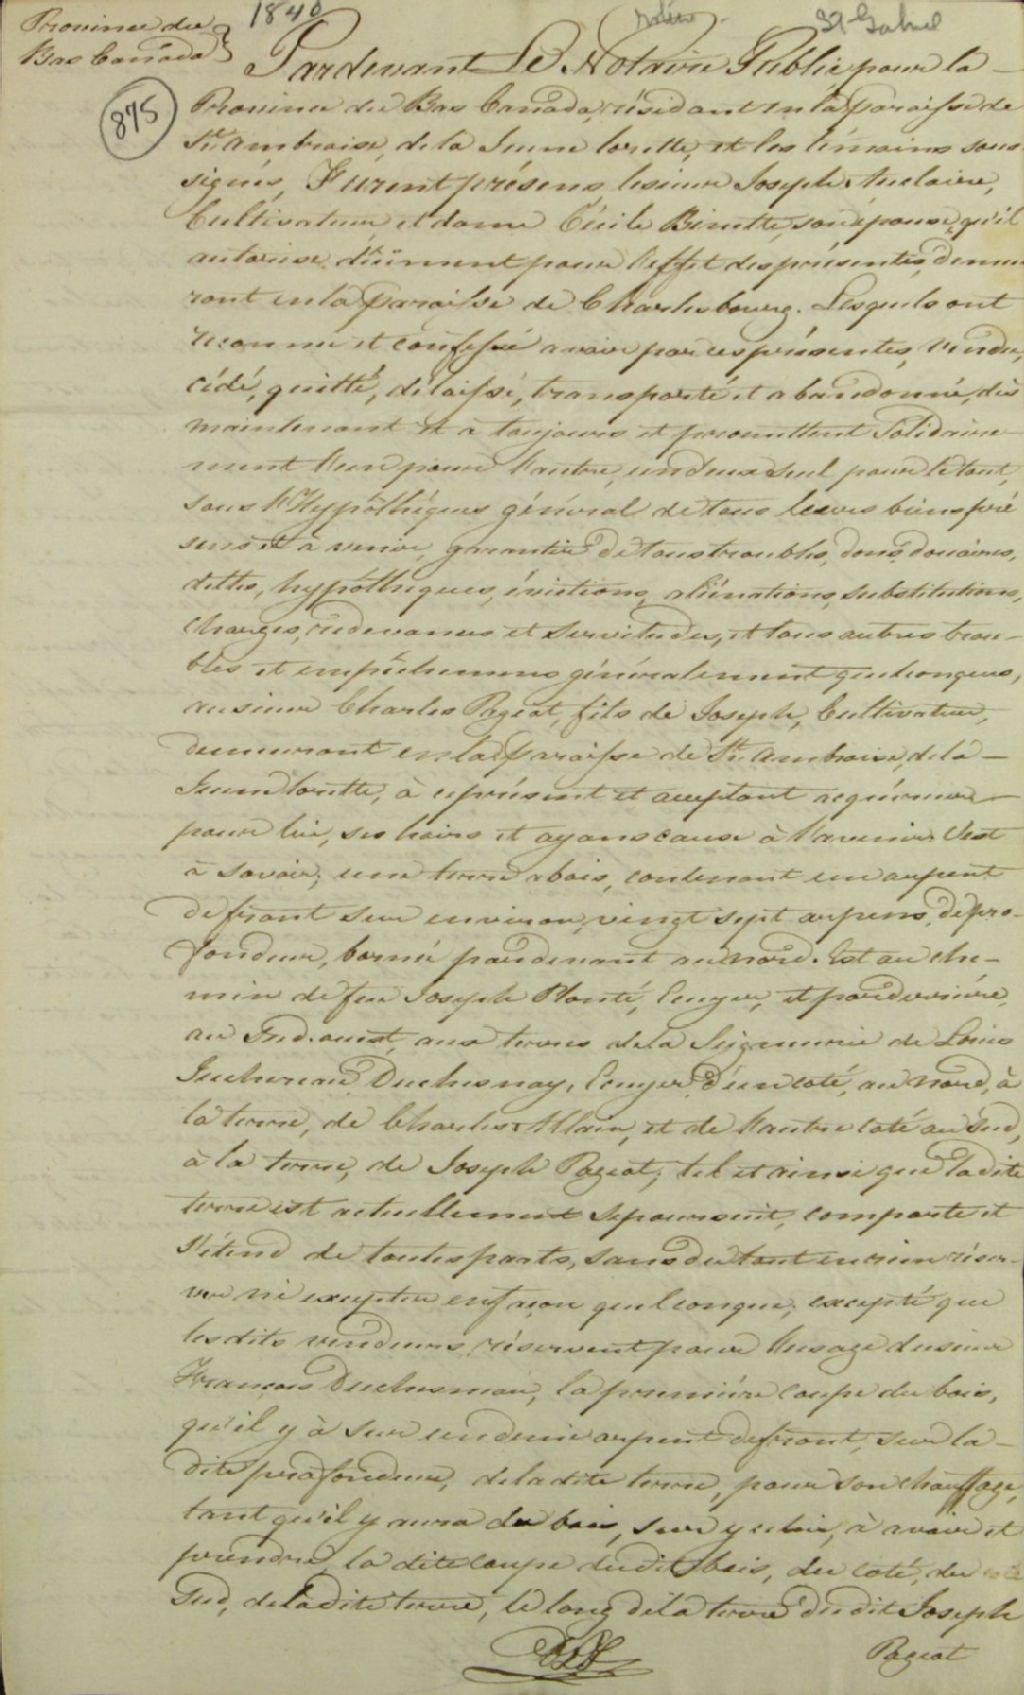 1840
St Gabriel
Province du
Bas Canada }
875
Pardevant Le Notaire Public pour la
Province du Bas Canada, résidant en la Paroisse de
St. Ambroise, de la Jeune lorette, et les témoins sous
signés, Furent présens lesieur Joseph Auclaire,
Cultivateur, et dame Cécile Binette, son épouse, qu'il
autorise düment pour l'effet des présentes, demeu
rant en la Paroisse de Charlesbourg. Lesquels ont
reconnu et confessé avoir par ces présentes, vendu,
cédé, quitté, délaissé, transporté et abandonné, dès
maintenant et à toujours et promettent Solidaire
ment l'un pour l'autre, un d'eux seul pour le tout,
sous l'Hypothèques général de tous leurs biens pré
sens et à venir, garantir de tous troubles, dons, douaires,
dettes, hypothèques, évictions, aliénations, substitutions,
charges, redevances et servitudes, et tous autres trou-
bles et empêchemens généralement quelconques,
au sieur Charles Pageot, fils de Joseph, Cultivateur,
demeurant en la Paroisse de St. Ambroise, de la
Jeune lorette, à ce présent et acceptant acquéreur
pour lui, ses hoirs et ayans cause à l'avenir. C'est
à savoir; une terre abois, contenant un arpent
de front sur environ vingt sept arpens, de pro-
fondeur, borné par devant au nord. Est au che-
min de feu Joseph Planté, Ecuyer, et par derrière,
au Sud. ouest, aux terres dela Seigneurie de Louis
Juchereau Duchesnay, Ecuyer, d'un coté, au nord, à
la terre, de Charles Allain, et de l'autre coté au Sud,
à la terre, de Joseph Pageot; tel et ainsi que ladite
terre est actuellement sepoursuit, comporte et
s'étend de toutes parts, sans du tout en rien réser-
ver ni excepter en façon quelconque; excepté que
lesdits vendeurs, réservent pour l'usage dusieur
François Duchesneau, la première coupe du bois,
qu'il y à sur un demi arpent defront, sur la
dite profondeur, de ladite terre, pour son chauffage,
tant qu'il y aura du bois, sur ycelui, à avoir et
prendre, la dite coupe du dit bois, du coté, du
Sud, deladite terre, le long dela terre du dit Joseph
Pageot